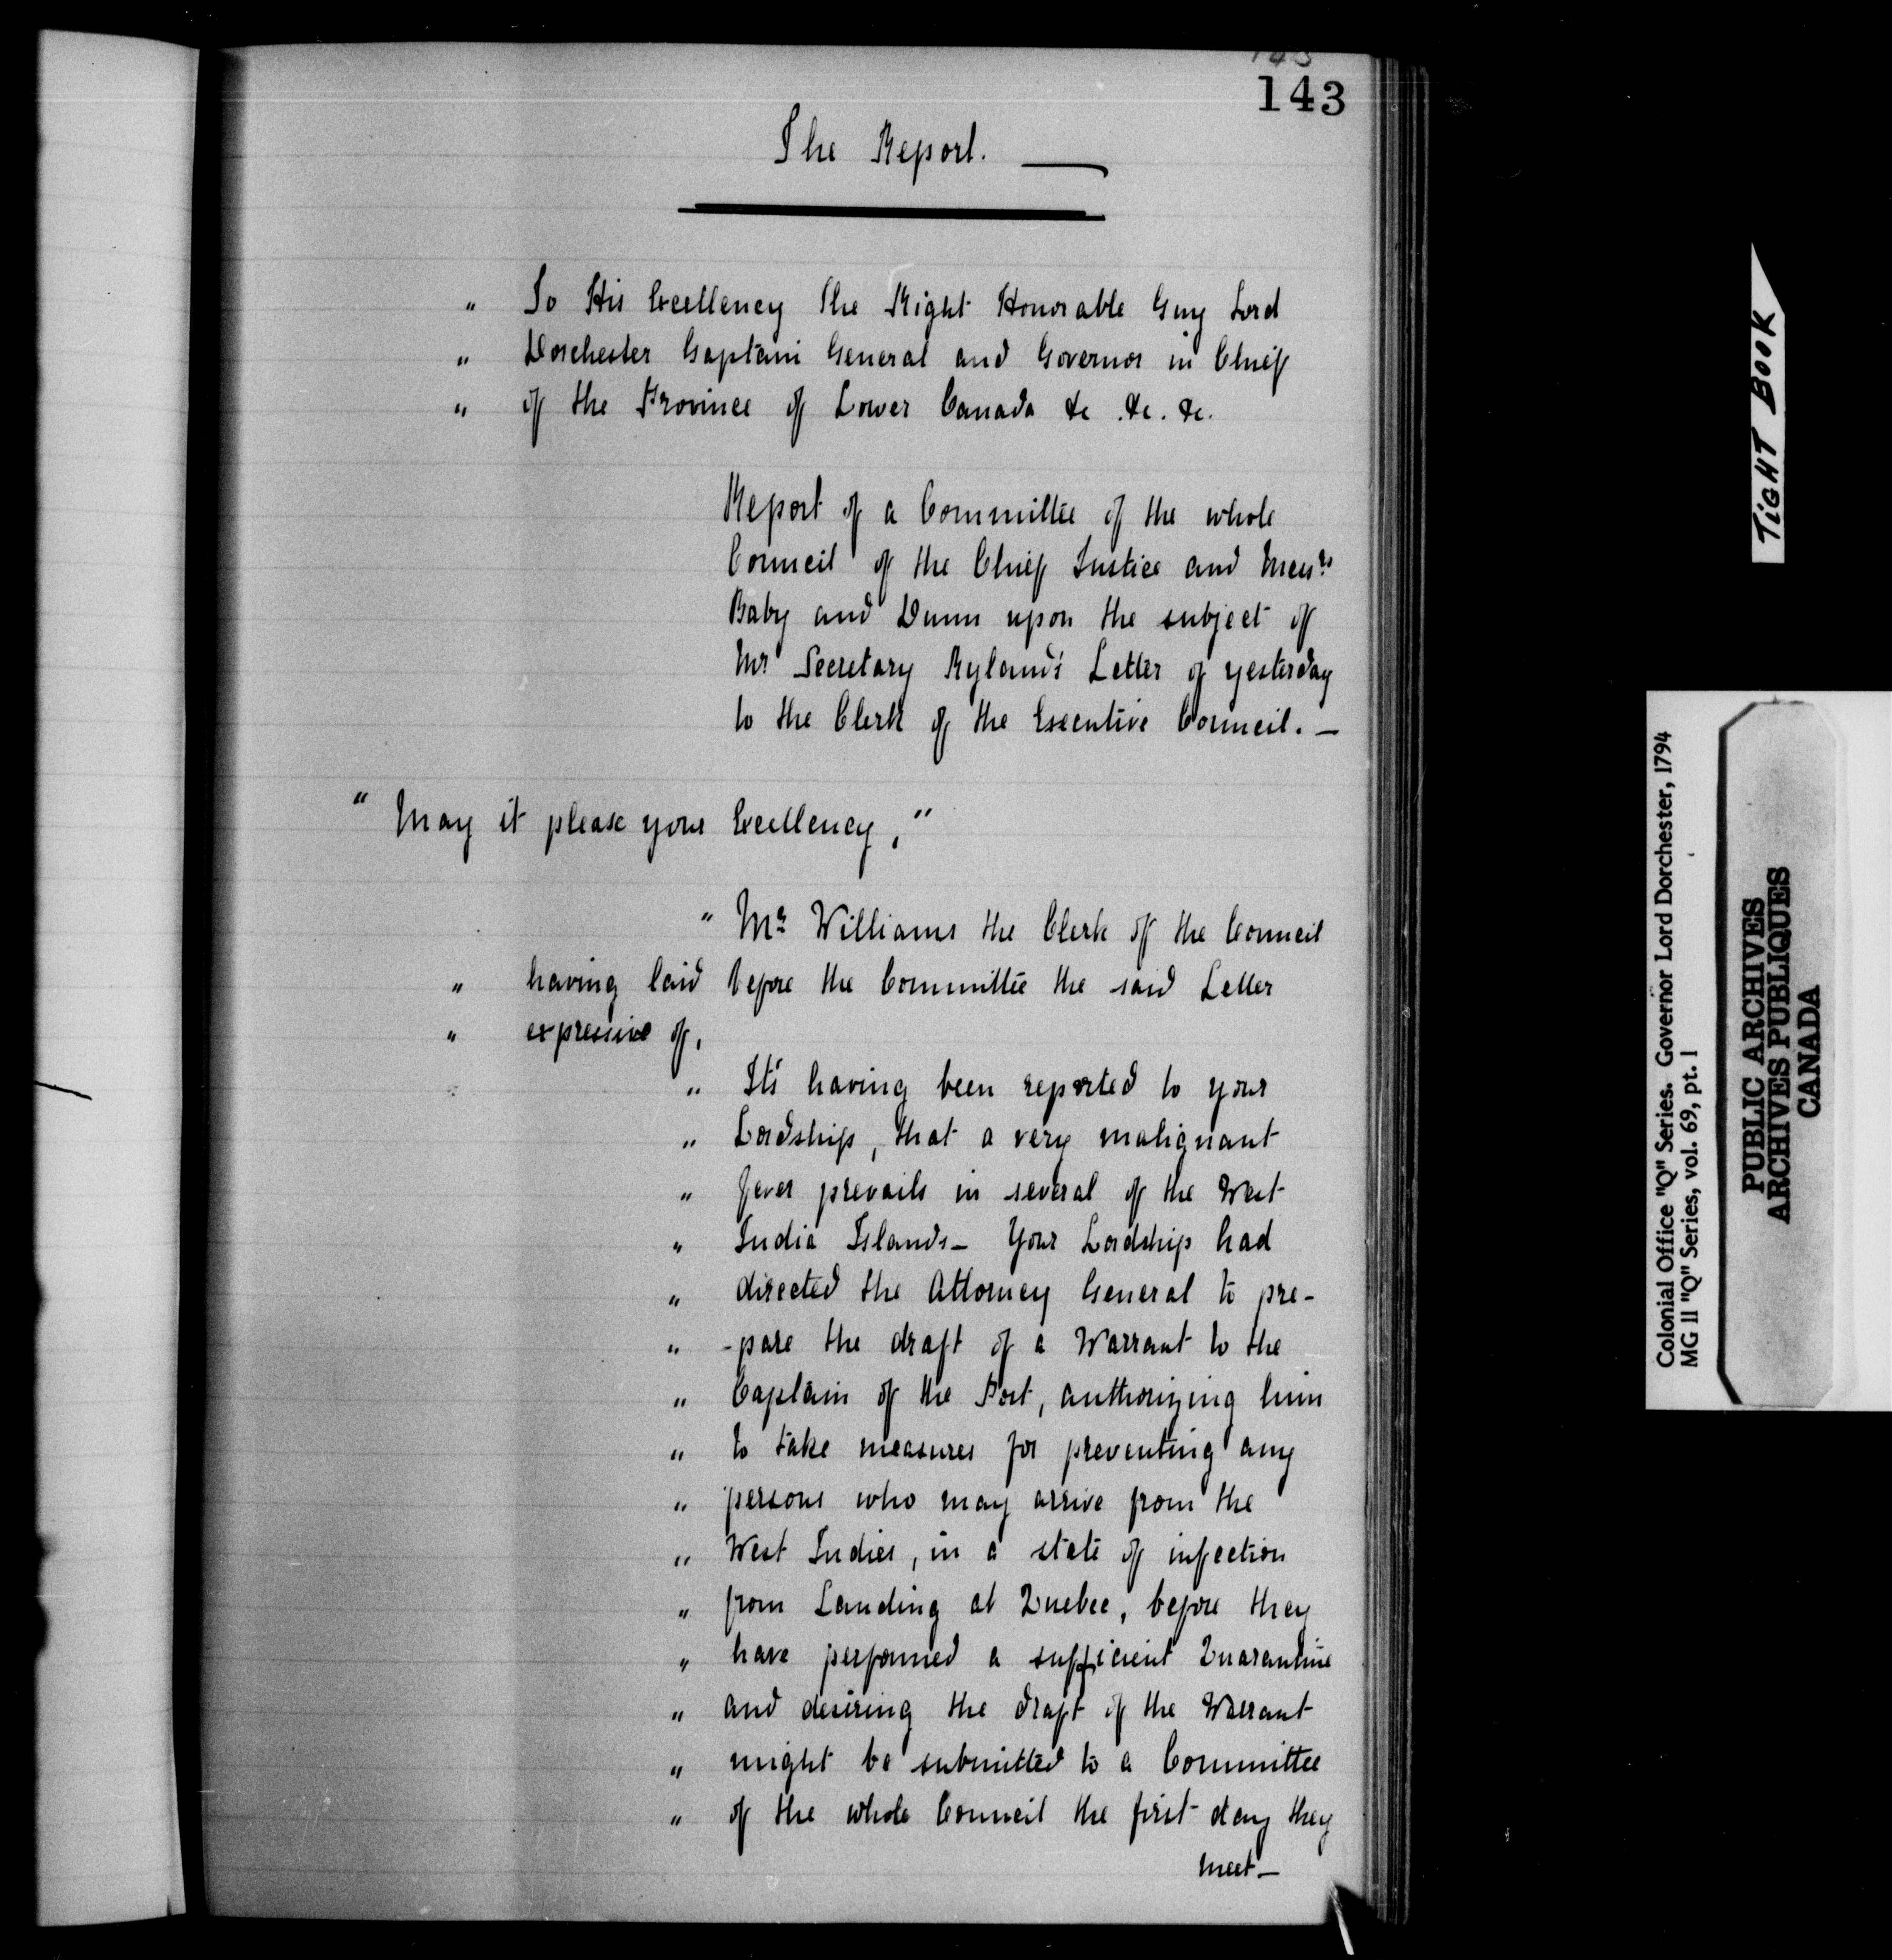 143
143
The Report. —
" To His Excellency The Right Honorable Guy Lord
" Dorchester Captain General and Governor in Chief
" of the Province of Lower Canada &c .&c. &c.
Report of a Committee of the whole
Council of the Chief Justice and Mess.rs
Baby and Dunn upon the subject of
Mr Secretary Ryland's Letter of yesterday
to the Clerk of the Executive Council. —
" May it please your Excellency, "
" Mr. Williams the Clerk of the Council
" having laid before the Committee the said Letter
" expressive of,
" It's having been reported to your
" Lordship, that a very malignant
" fever prevails in several of the West
" India Islands — Your Lordship had
" directed the Attorney General to pre-
" -pare the draft of a Warrant to the
" Captain of the Port, authorizing him
" to take measures for preventing any
" persons who may arrive from the
" West Indies, in a state of infection
" from Landing at Quebec, before they
" have performed a sufficient Quarantine
" and desiring the draft of the Warrant
" might be submitted to a Committee
" of the whole Council the first day they
meet —
TIGHT BOOK
Colonial Office "Q" Series. Governor Lord Dorchester, 1794
MG 11 "Q" Series, vol. 69, pt. 1
PUBLIC ARCHIVES
ARCHIVES PUBLIQUES
CANADA